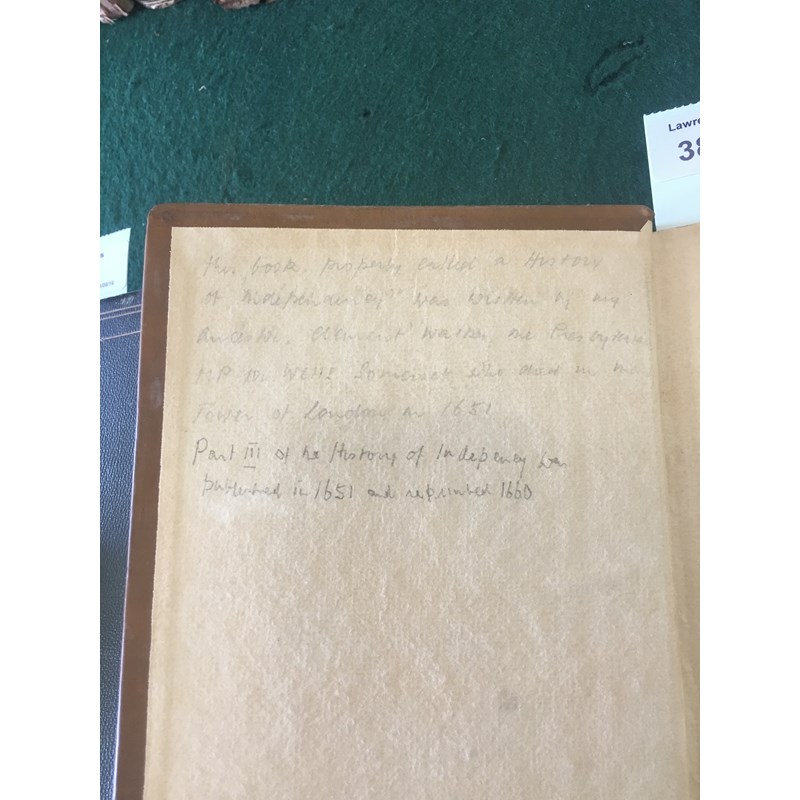 Lawre
38
This book, properly called "a History
of Independency" was written by my
ancestor Clement Walker, the Presbyterian
MP for Wells Somerset, who died in the
Tower of London in 1651
Part III of the History of Indepency was
published in 1651 and reprinted 1660